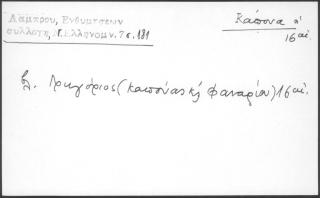 Λάμπρου, Ενθυμήσεων
συλλογή, Ν. Ελληνομν. 7 σ. 181
Κάπουα
16 αἰ.
βλ. Γρηγόριος (Καπούας κ̀ Φαναρίου) 16 αἰ.